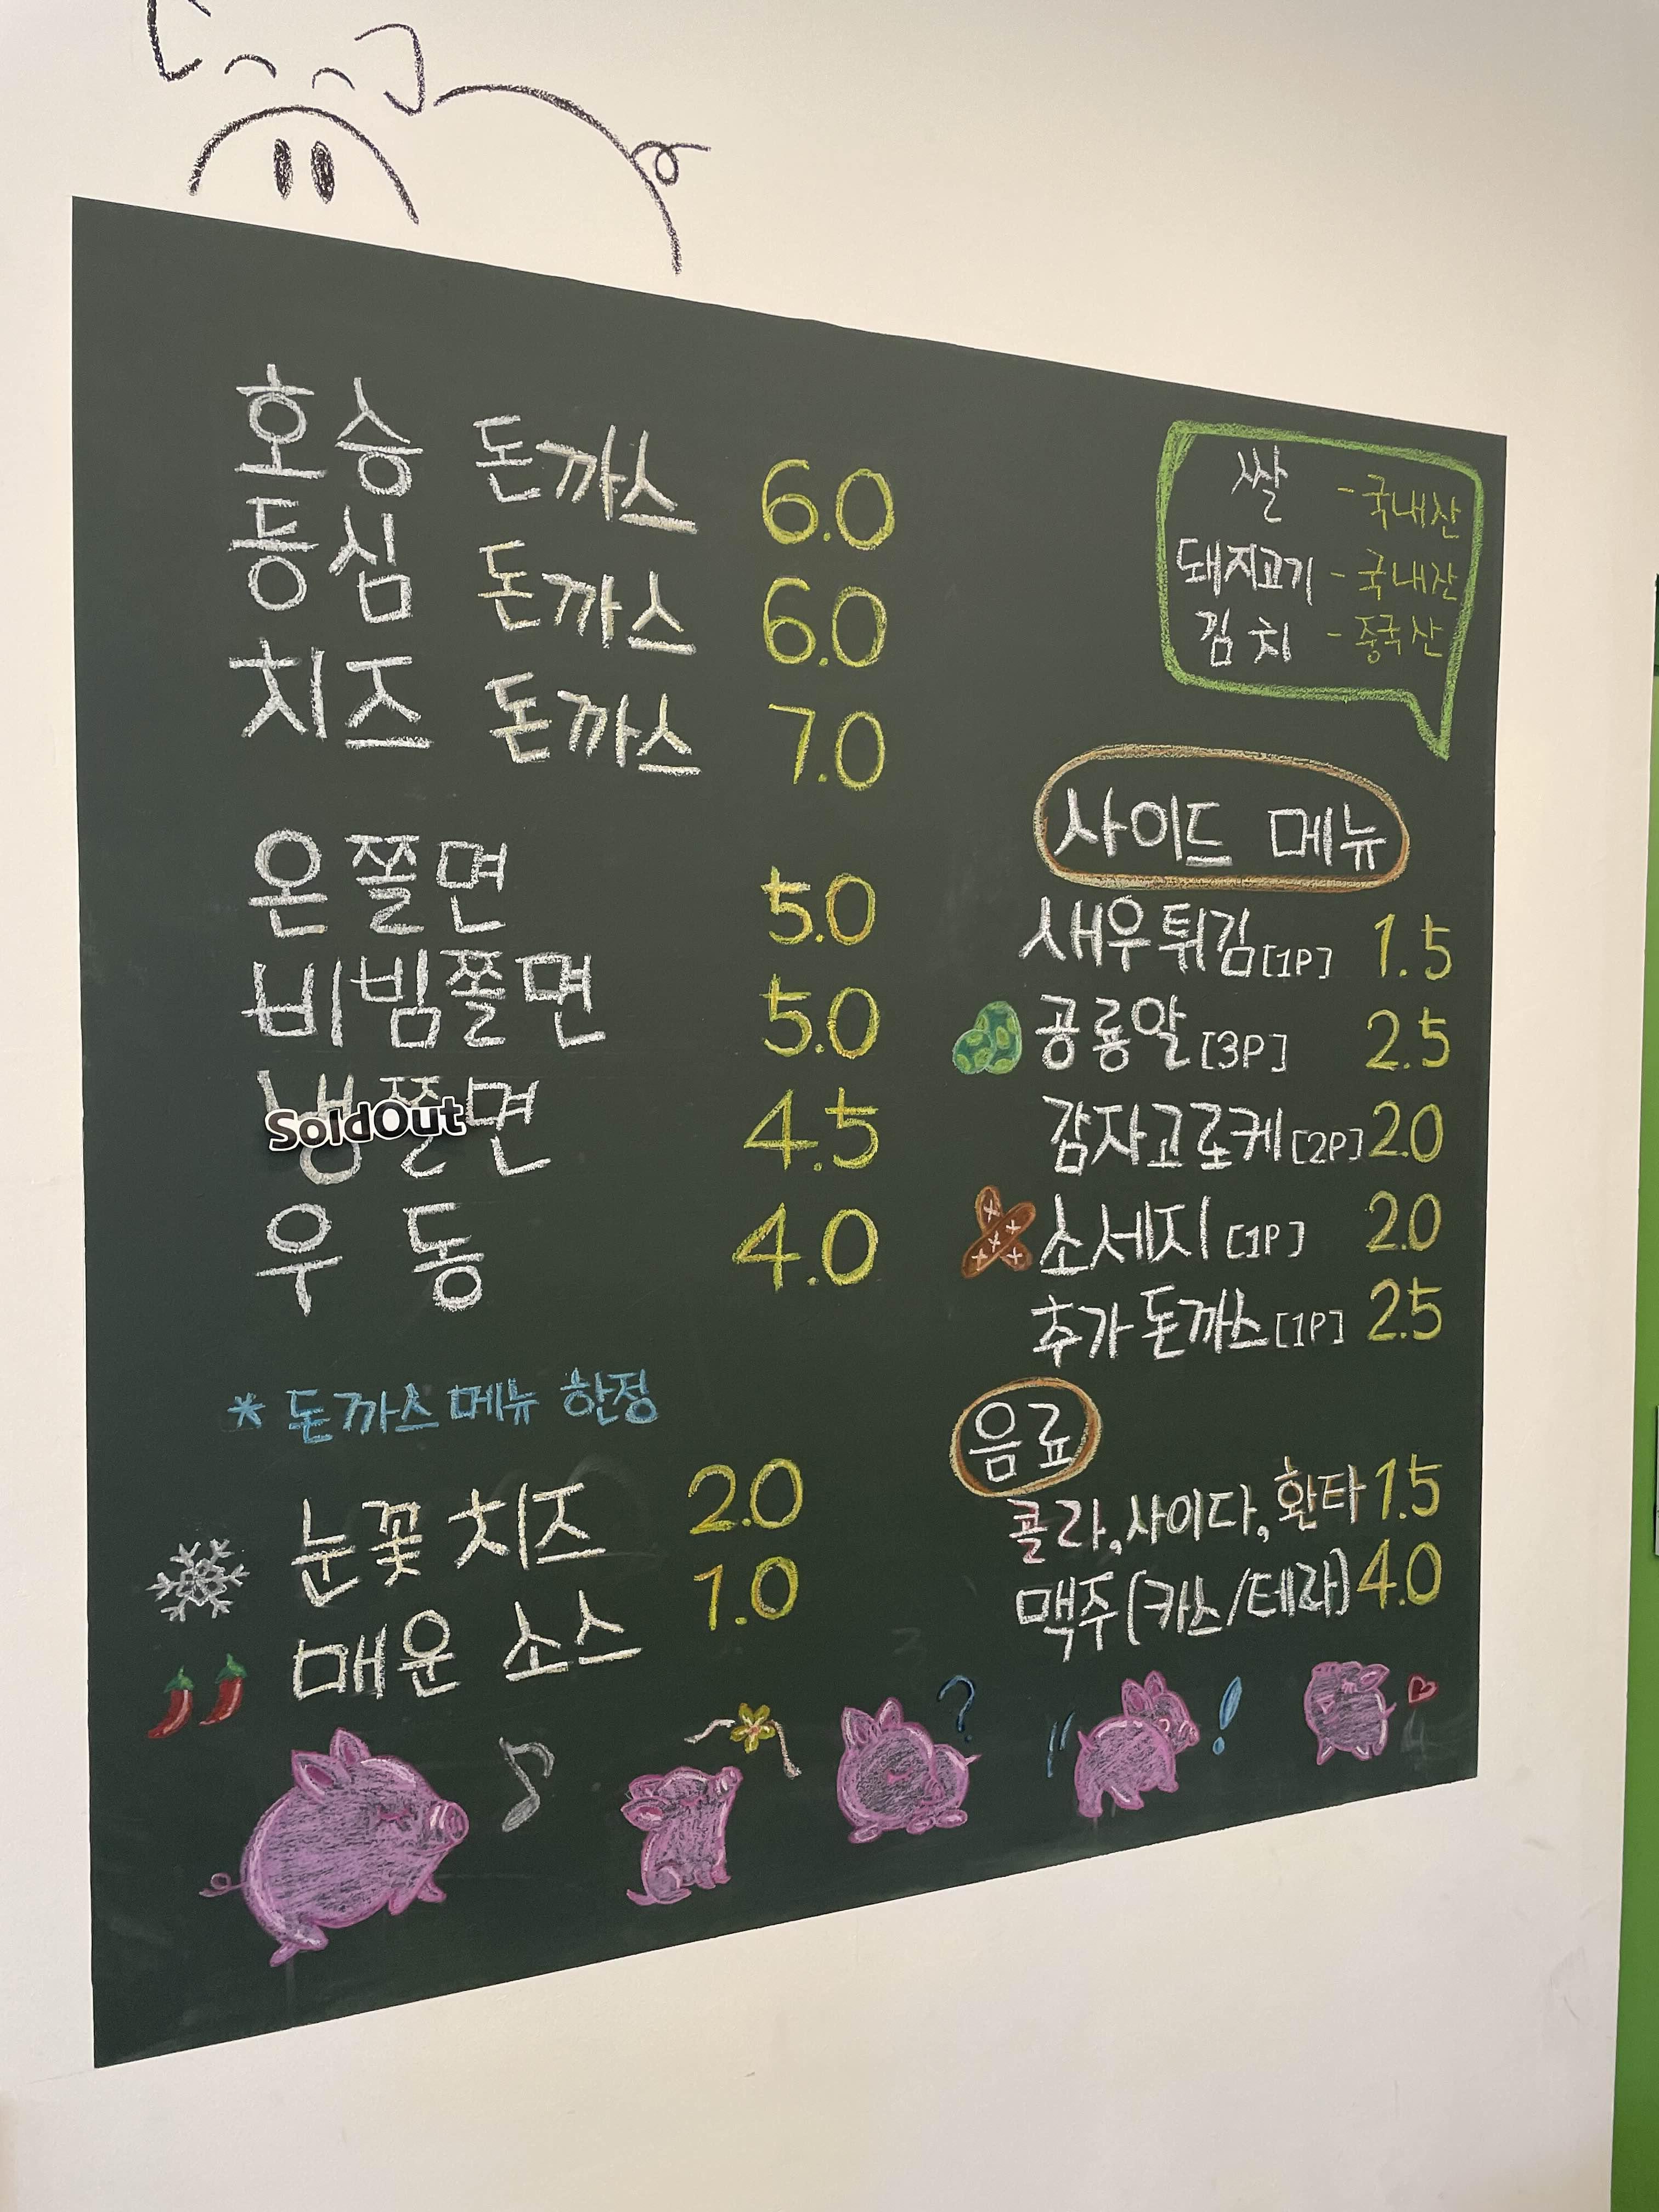 호승 돈까스 6.0
등심 돈까스 6.0
치즈 돈까스 7.0
온쫄면 5.0
비빔쫄면 5.0
냉쫄면 4.5
SoldOut
우동 4.0
* 돈까스 메뉴 한정
눈꽃 치즈 2.0
매운 소스 1.0
쌀 - 국내산
돼지고기 - 국내산
김치 - 중국산
사이드 메뉴
새우튀김[1P] 1.5
공룡알[3P] 2.5
감자고로케[2P] 2.0
소세지[1P] 2.0
추가 돈까스[1P] 2.5
음료
콜라, 사이다, 환타 1.5
맥주(카스/테라) 4.0